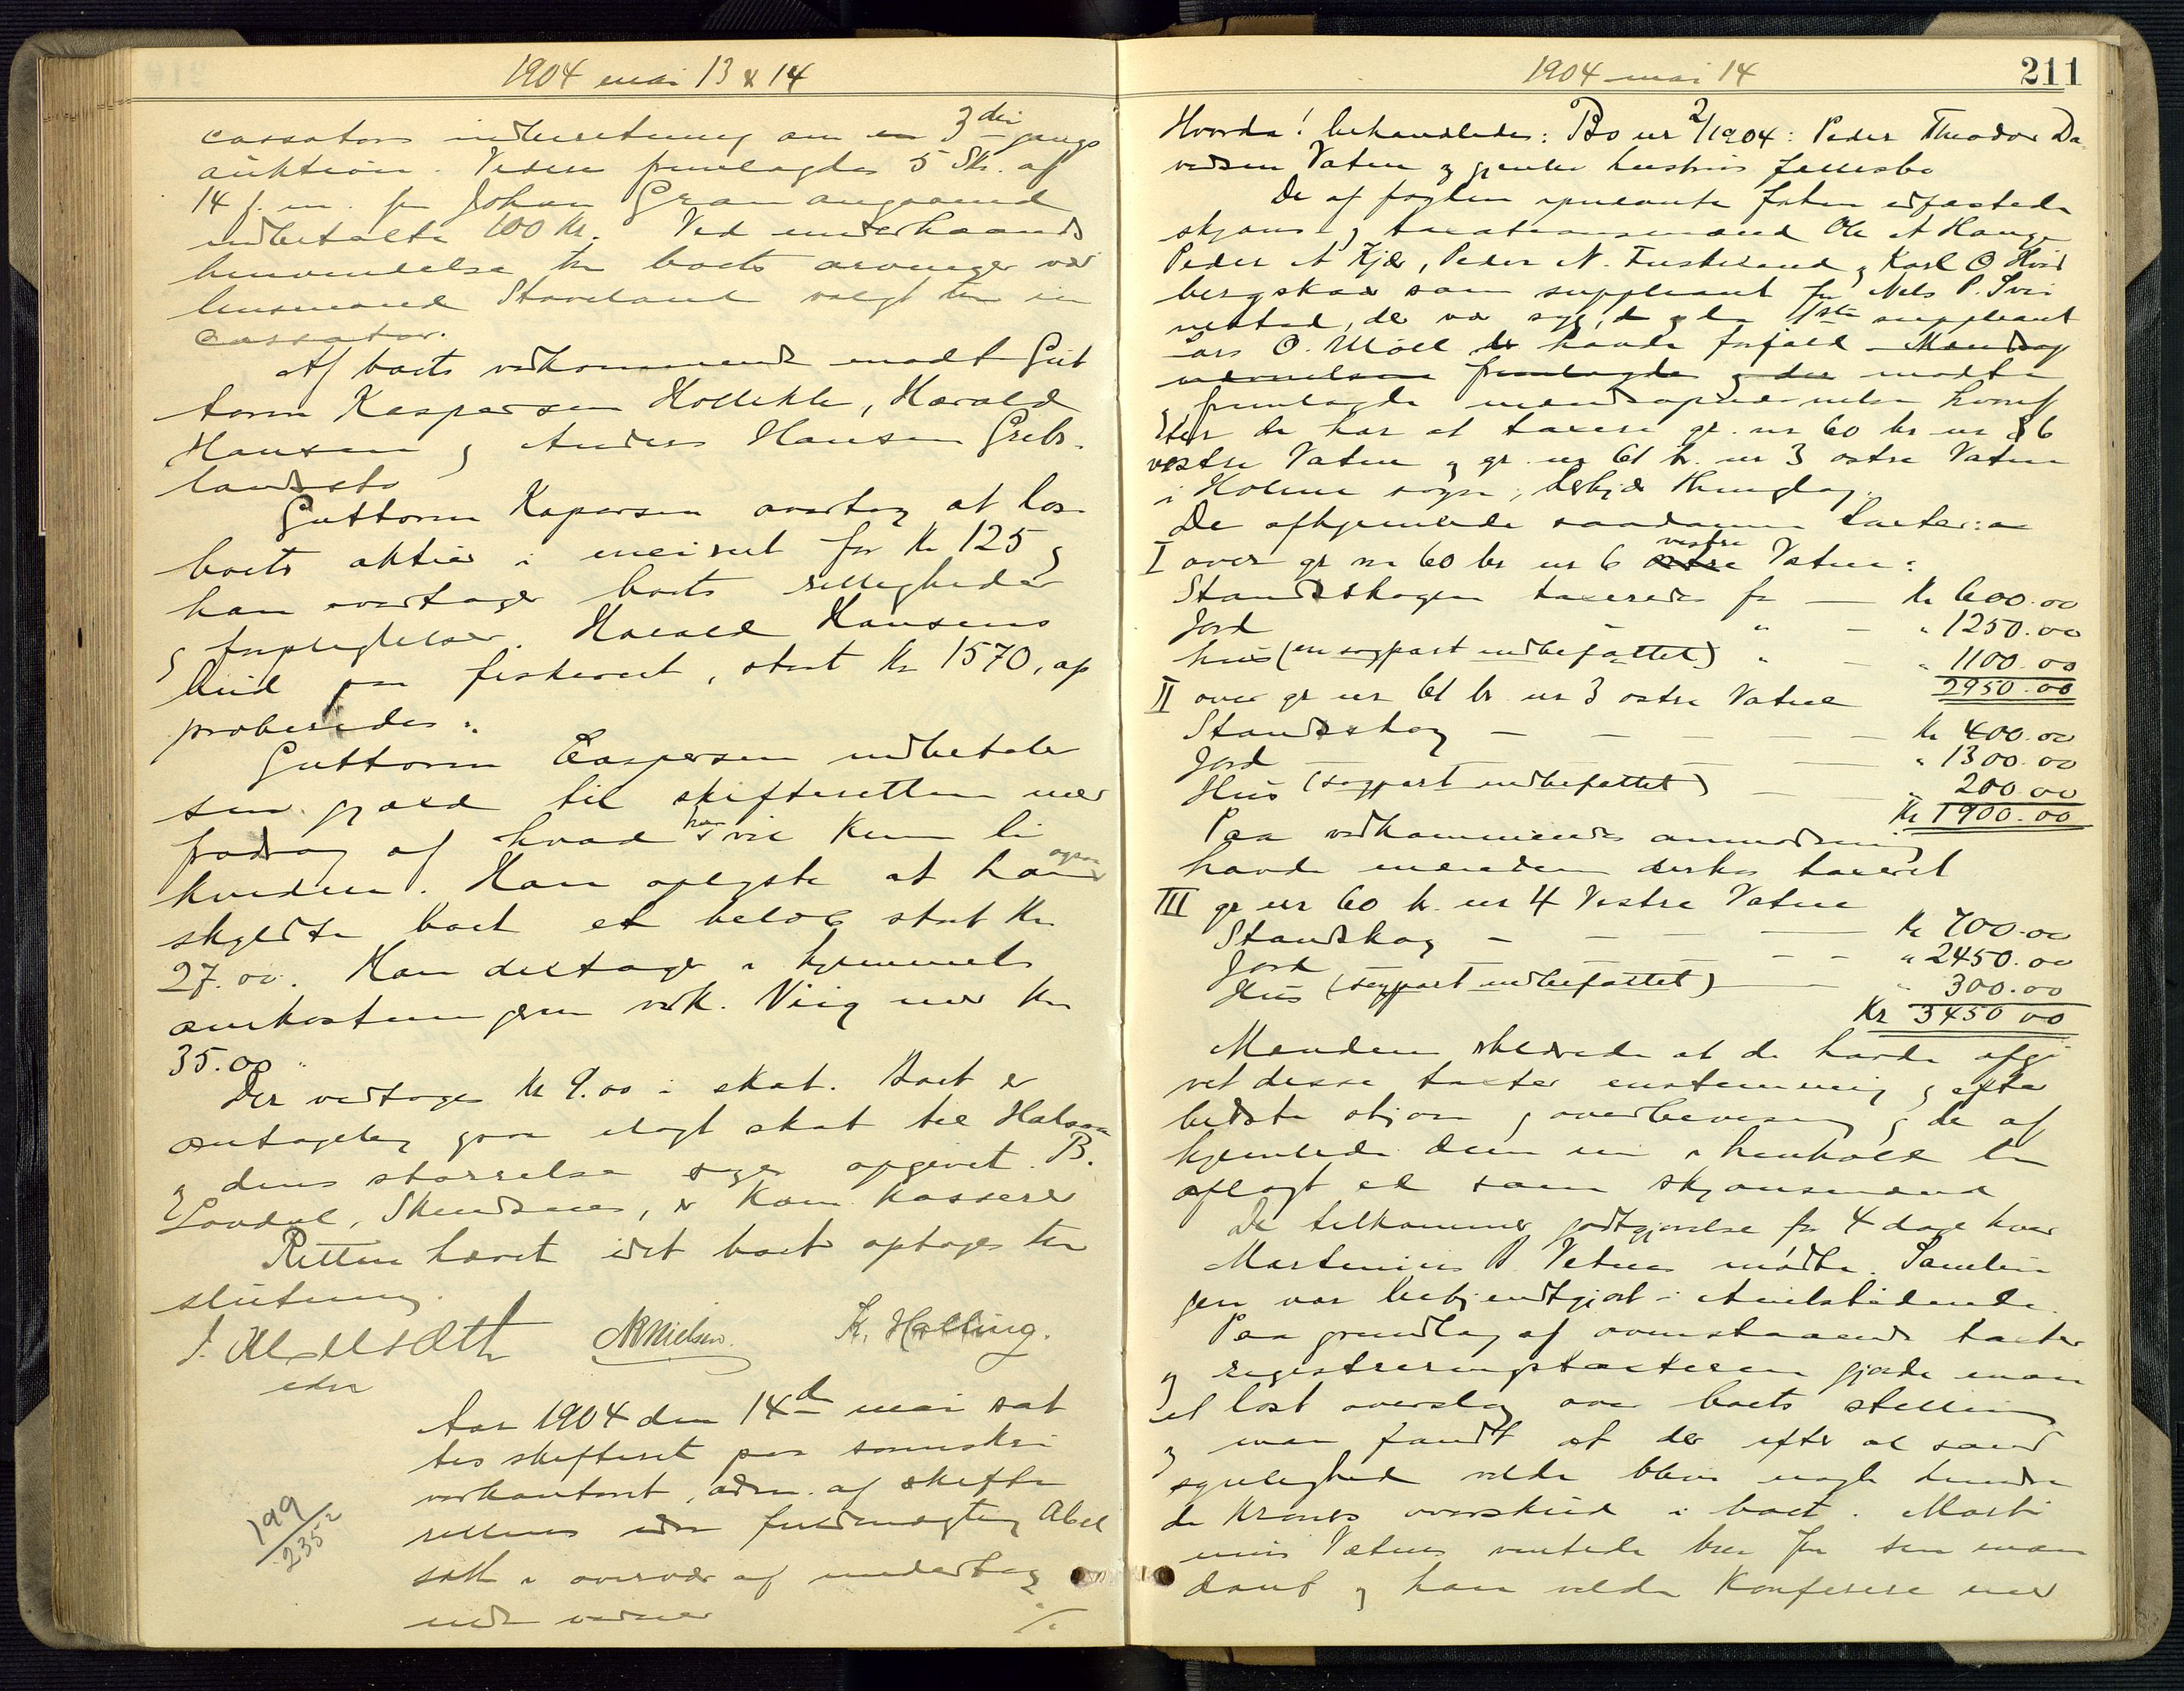 1904 mai 13 & 14
cassators indberetning om en 3die gangs
auktion. Videre fremlagdes 5 Skr. af
14 f. m. fra Johan Gram angaaende
indbetalte 100 Kr. Ved underhaands
henvendelse til boets arvinger var
lensmand Staveland valgt til in
cassator.
Af boets vedkommende mødt Gut
torm Kaspersen Holskle, Harald
Hansen og Anders Hansen Grebs-
landsto
Guttorm Kapersen overtog at los
boets aktier i meieriet for Kr 125 og
han overtager boets rettigheder
og forpligtelser. Harald Hansens
bud paa fiskeret, stort Kr 1570, ap
proberedes.
Guttorm Caspersen indbetaler
sin gjæld til skifteretten med
fradrag af hvad han vil kunne bli
kvidere. Han oplyste at han ogsaa
skyldte boet et beløb stort Kr
27.00. Han deltager i hjemmels
omkostningerne vedk. Viig med Kr
35.00
Der vedtages Kr 9.00 i skat. Boet er
antagelig paa ilagt skat til Halsaa
og dens størrelse søges opgivet. B.
Lovdal, Skinsnes, er kom. kasserer
Retten hævet idet boet optages til
slutning.
J. Abelsæth NRNielsen. K. Halling.
edsv
Aar 1904 den 14de mai sat
tes skifteret paa sorenskri
verkontoret, adm. af skifte
rettens edsv fuldmægtig Abel
sæth i overvær af underteg
nede vidner ./.
199/235 2
1904 mai 14 211
Hvorda! behandledes: Bo nr 2/1904: Peder Theodor Da
vidsen Vatne og gjenlev hustrus fællesbo
De af fogden opnævnte forhen edfæstede
skjøns og taxationsmænd Ole A Hauge
Peder A Kjær, Peder N. Tusteland og Karl O Hind
bergskaar som suppleant for Nels P. Svi
nestad, der var syg, da ogsaa 1ste suppleant
Lars O. Møll der havde forfald - Mandsop
nævnelsen fremlagdes og der mødte
og fremlagde mandsopnævnelse hvoref
ter de har at taxere gr. nr 60 br nr 3 6
vestre Vatne og gr. nr 61 br. nr 3 østre Vatne
i Holme sogn, Lerkjær thinglag.
De afhjemlede saadanne taxter:
I over gr nr 60 br nr 6 østre vestre Vatne:
Standskogen taxeredes for — Kr 600.00
Jord " — " 1250.00
Hus (en sagpart indbefattet) " — " 1100.00
2950.00
II over gr nr 61 br nr 3 østre Vatne
Standskog — — — — Kr 400.00
Jord — — — " 1300.00
Hus (sagpart indbefattet) — — " 200.00
Kr 1900.00
Paa vedkommendes anmodning
havde mændene derhos taxeret
III gr nr 60 br. nr 4 Vestre Vatne
Standskog — — — Kr 700.00
Jord — — — — " 2450.00
Hus (sagpart indbefattet) — — " 300.00
Kr 3450 00
Mændene erklærede at de havde afgi
vet disse taxter enstemmig og efter
bedste skjøn og overbevisning og de af
hjemlede dem nu i henhold til
aflagt ed som skjønsmænd
De tilkommer godtgjørelse for 4 dage hver
Martinius P. Vatne mødte. Samlin
gen var bekjendtgjort i Amtstidende.
Paa grundlag af ovenstaaende taxter
og registreringstaxteren gjorde man
et løst overslag over boets stilling
og man fandt at der efter al sand
synlighed vilde blive nogle hundre
de Kroners overskud i boet. Marti
nius Vatne ventede brev fra sin man
dant og han vilde konferere med